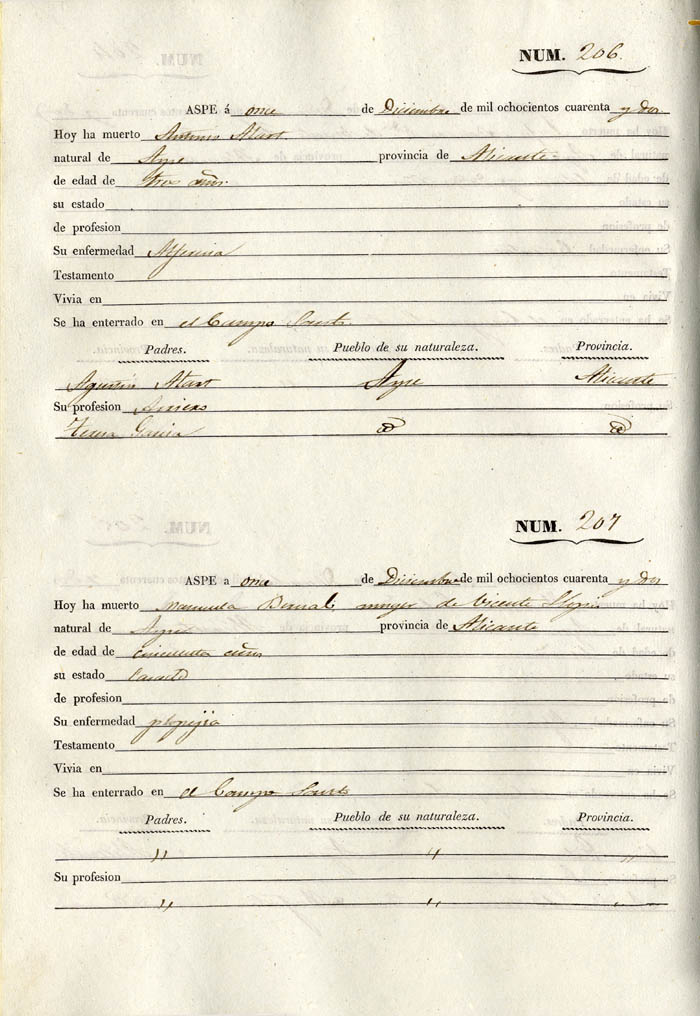 NUM. 206.
ASPE á once de Diciembre de mil ochocientos cuarenta y dos
Hoy ha muerto Antonio
natural de Aspe provincia de Alicante
de edad de tres años.
su estado
de profesion
Su enfermedad
Testamento
Vivia en
Se ha enterrado en el Campo Santo
Padres. Pueblo de su naturaleza. Provincia.
Agustin Aspe Alicante
Su profesion Arriero
Teresa Garcia
NUM. 207
ASPE a once de Diciembre de mil ochocientos cuarenta y dos
Hoy ha muerto Manuela Bernabe muger de Vicente
natural de Aspe provincia de Alicante
de edad de cincuenta años
su estado Casado
de profesion
Su enfermedad
Testamento
Vivia en
Se ha enterrado en el Campo Santo
Padres. Pueblo de su naturaleza. Provincia.
" " "
Su profesion
" " "